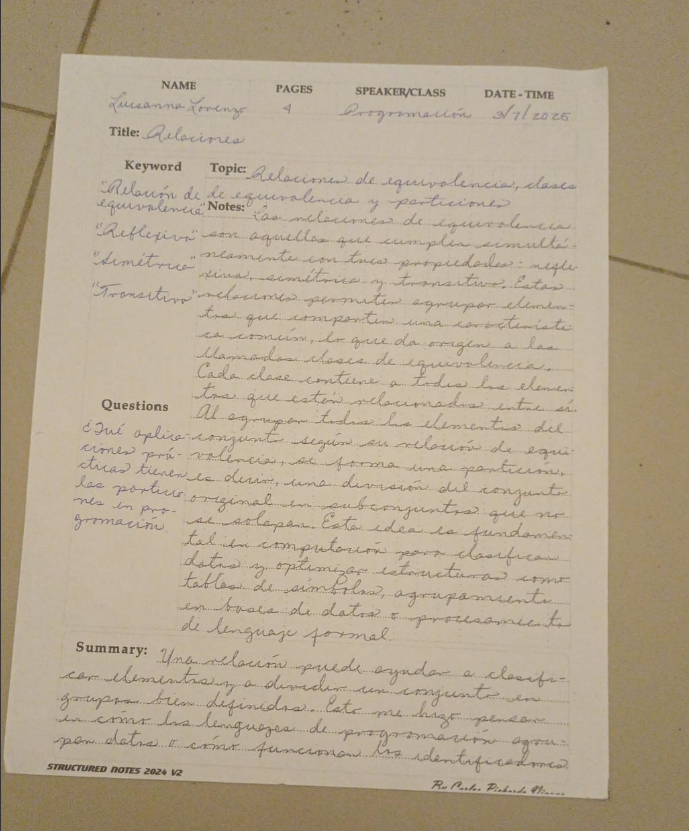 NAME PAGES SPEAKER/CLASS DATE - TIME
Luisanna Lorenzo 4 Programación 3/7/2025
Title: Relaciones
Keyword Topic: Relaciones de equivalencia, clases
de equivalencia y particiones
"Relación de
equivalencia"
"Reflexiva"
"Simétrica"
"Transitiva"
Notes: Las relaciones de equivalencia
son aquellas que cumplen simultá-
neamente con tres propiedades: refle
xiva, simétrica y transitiva. Estas
relaciones permiten agrupar elemen-
tos que comparten una característi
ca común, lo que da origen a las
llamadas clases de equivalencia.
Cada clase contiene a todos los elemen
tos que estén relacionados entre sí.
Al agrupar todos los elementos del
conjunto según su relación de equi
valencia, se forma una partición,
es decir, una división del conjunto
original en subconjuntos que no
se solapan. Esta idea es fundamen
tal en computación para clasificar
datos y optimizar estructuras como
tablas de símbolos, agrupamiento
en bases de datos o procesamiento
de lenguaje formal.
Questions
¿Qué aplica-
ciones prá-
cticas tienen
las particio
nes en pro-
gramación
Summary: Una relación puede ayudar a clasifi-
car elementos y a dividir un conjunto en
grupos bien definidos. Esto me hizo pensar
en como los lenguajes de programación agru-
pan datos o cómo funcionan los identificadores
STRUCTURED NOTES 2024 V2
By: Carlos Pichardo